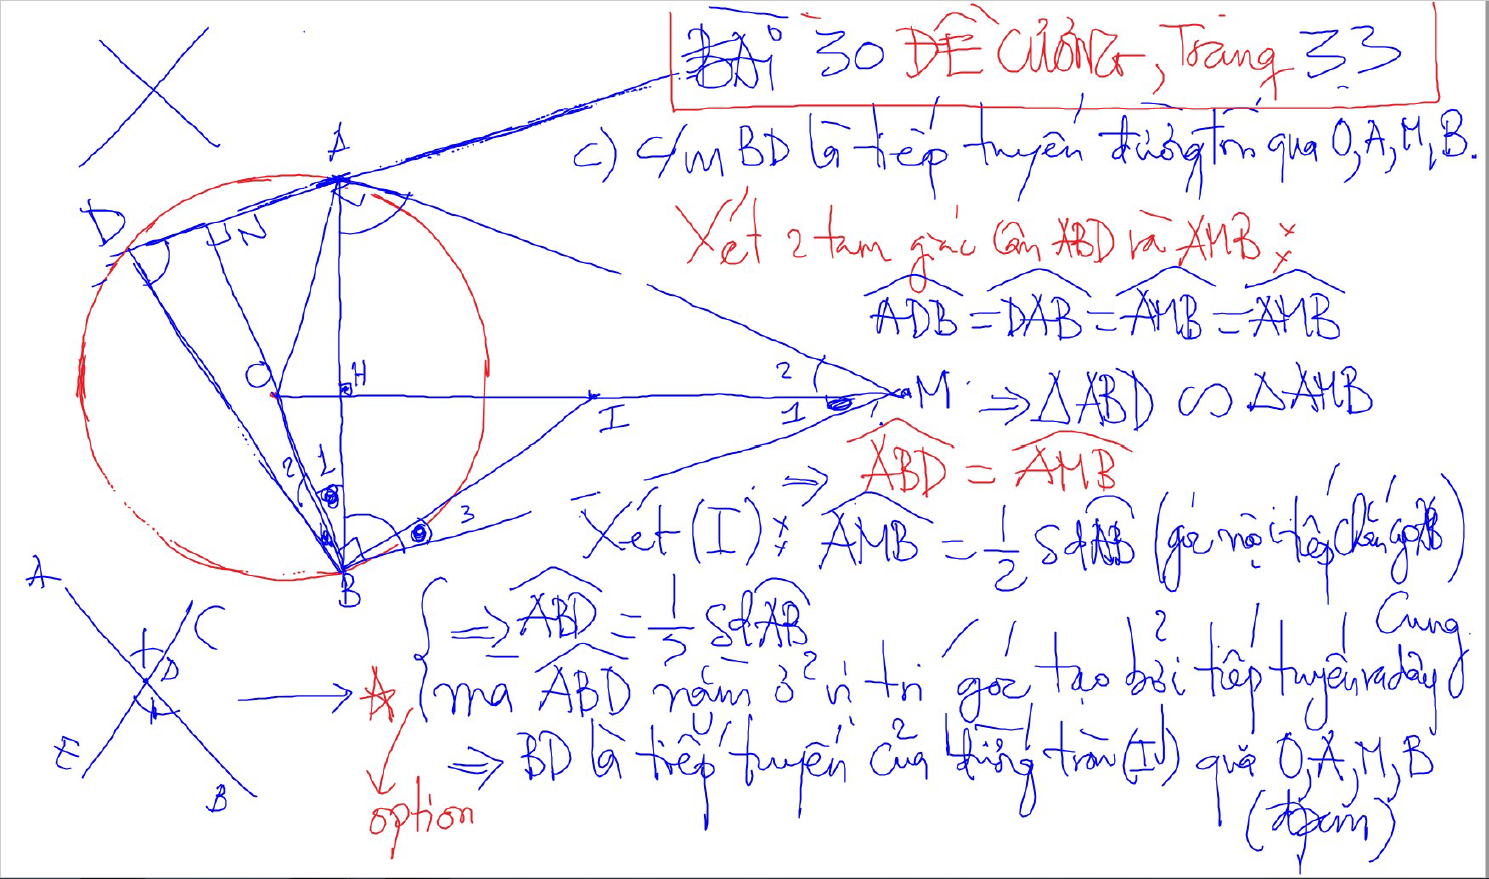 BÀI 30 ĐỀ CƯƠNG, Trang 33
c) c/m BD là tiếp tuyến đường tròn qua O, A, M, B.
Xét 2 tam giác cân ABD và AMB :
ADB = DAB = AMB = AMB
⇒ Δ ABD ∽ Δ AMB
⇒ ABD = AMB
Xét (I) : AMB = 1/2 sđ AB (góc nội tiếp chắn cung AB)
⇒ ABD = 1/2 sđ AB
mà ABD nằm ở vị trí góc tạo bởi tiếp tuyến và dây cung
⇒ BD là tiếp tuyến của đường tròn (I) qua O, A, M, B
(đpcm)
A
D
N
O
H
I
M
2
1
2
1
3
B
A
C
D
E
B
→ A
option